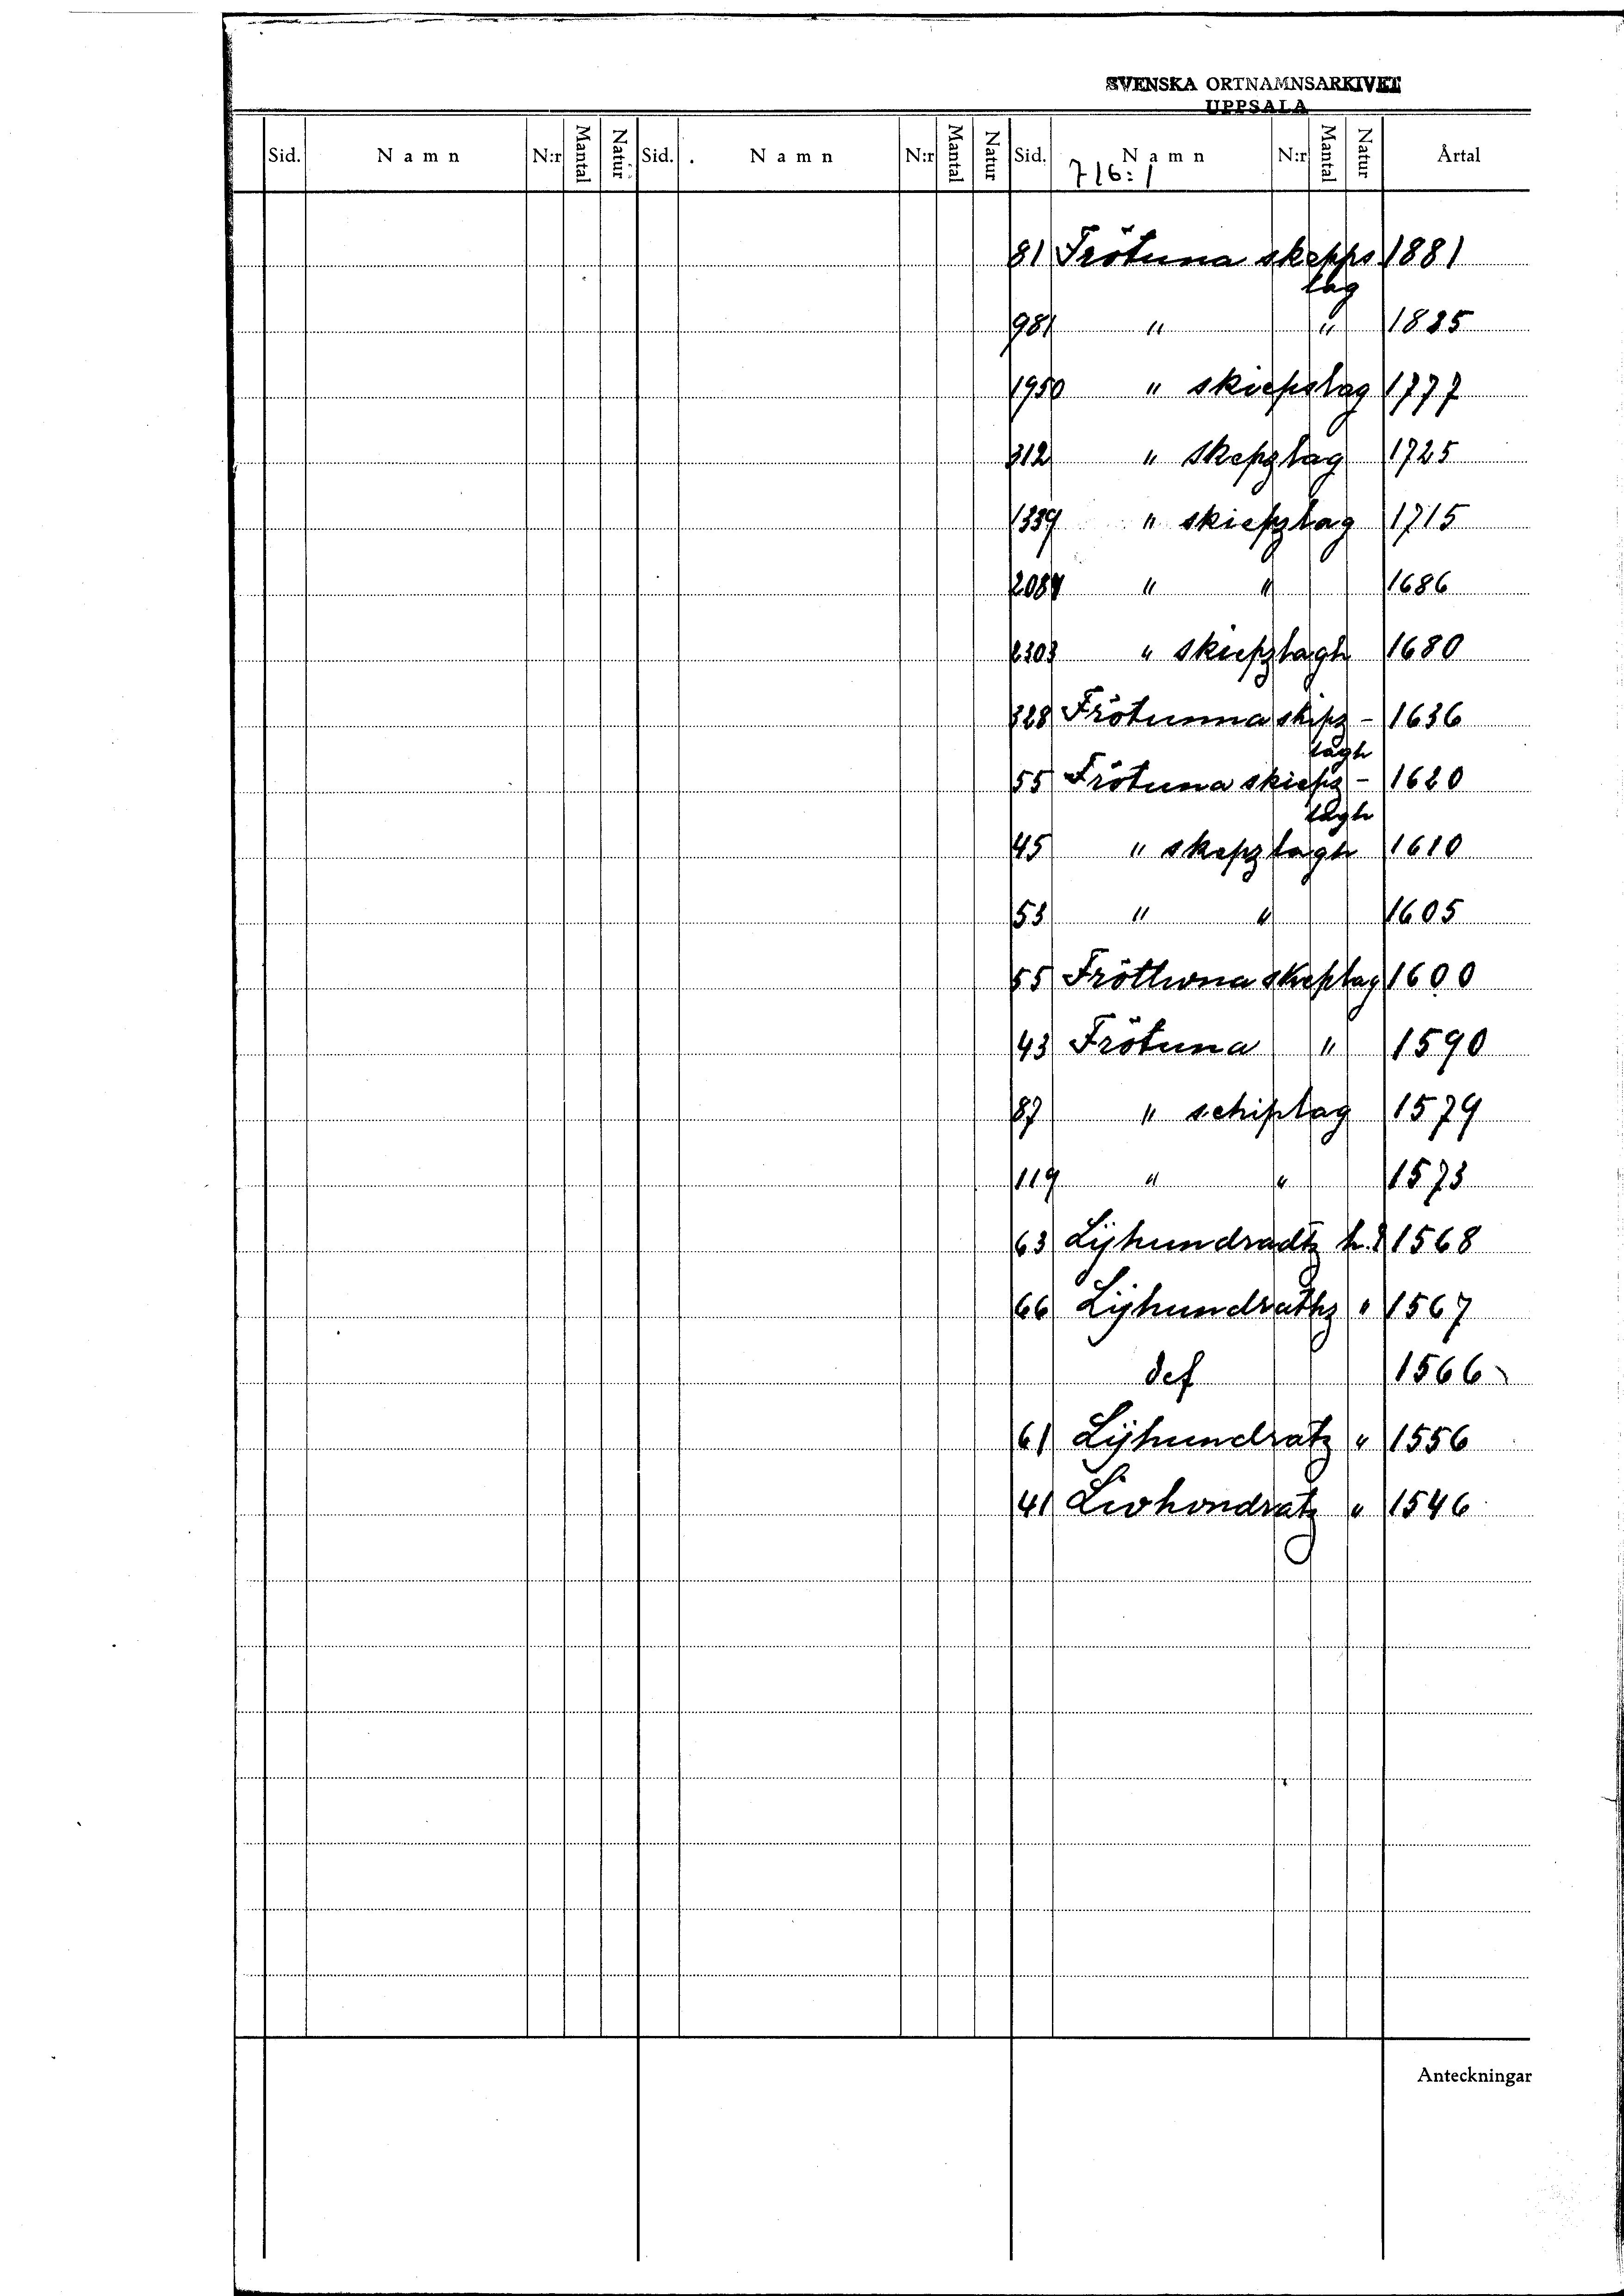 SVENSKA ORTNAMNSARKIVET
UPPSALA
Sid. Namn N:r Mantal Natur Sid. Namn N:r Mantal Natur Sid. Namn N:r Mantal Natur Årtal
716:1
81 Frötuna skepps 1881
lag
981 " " 1825
1950 " skiepslag 1777
312 " skepzlag 1725
1339 " skiepzlag 1715
2084 " " 1686
2303 " skiepzlagh 1680
328 Frötunna skipz - 1636
lagh
55 Frötuna skiepz - 1620
lagh
45 " skepzlagh 1610
53 " " 1605
55 Fröttwna skeplag 1600
43 Frötuna " 1590
87 " schiplag 1579
119 " " 1573
63 Lijhundradtz h. 1568
66 Lijhundrathz " 1567
def 1566
61 Lijhundratz " 1556
41 Livhondratz " 1546
Anteckningar